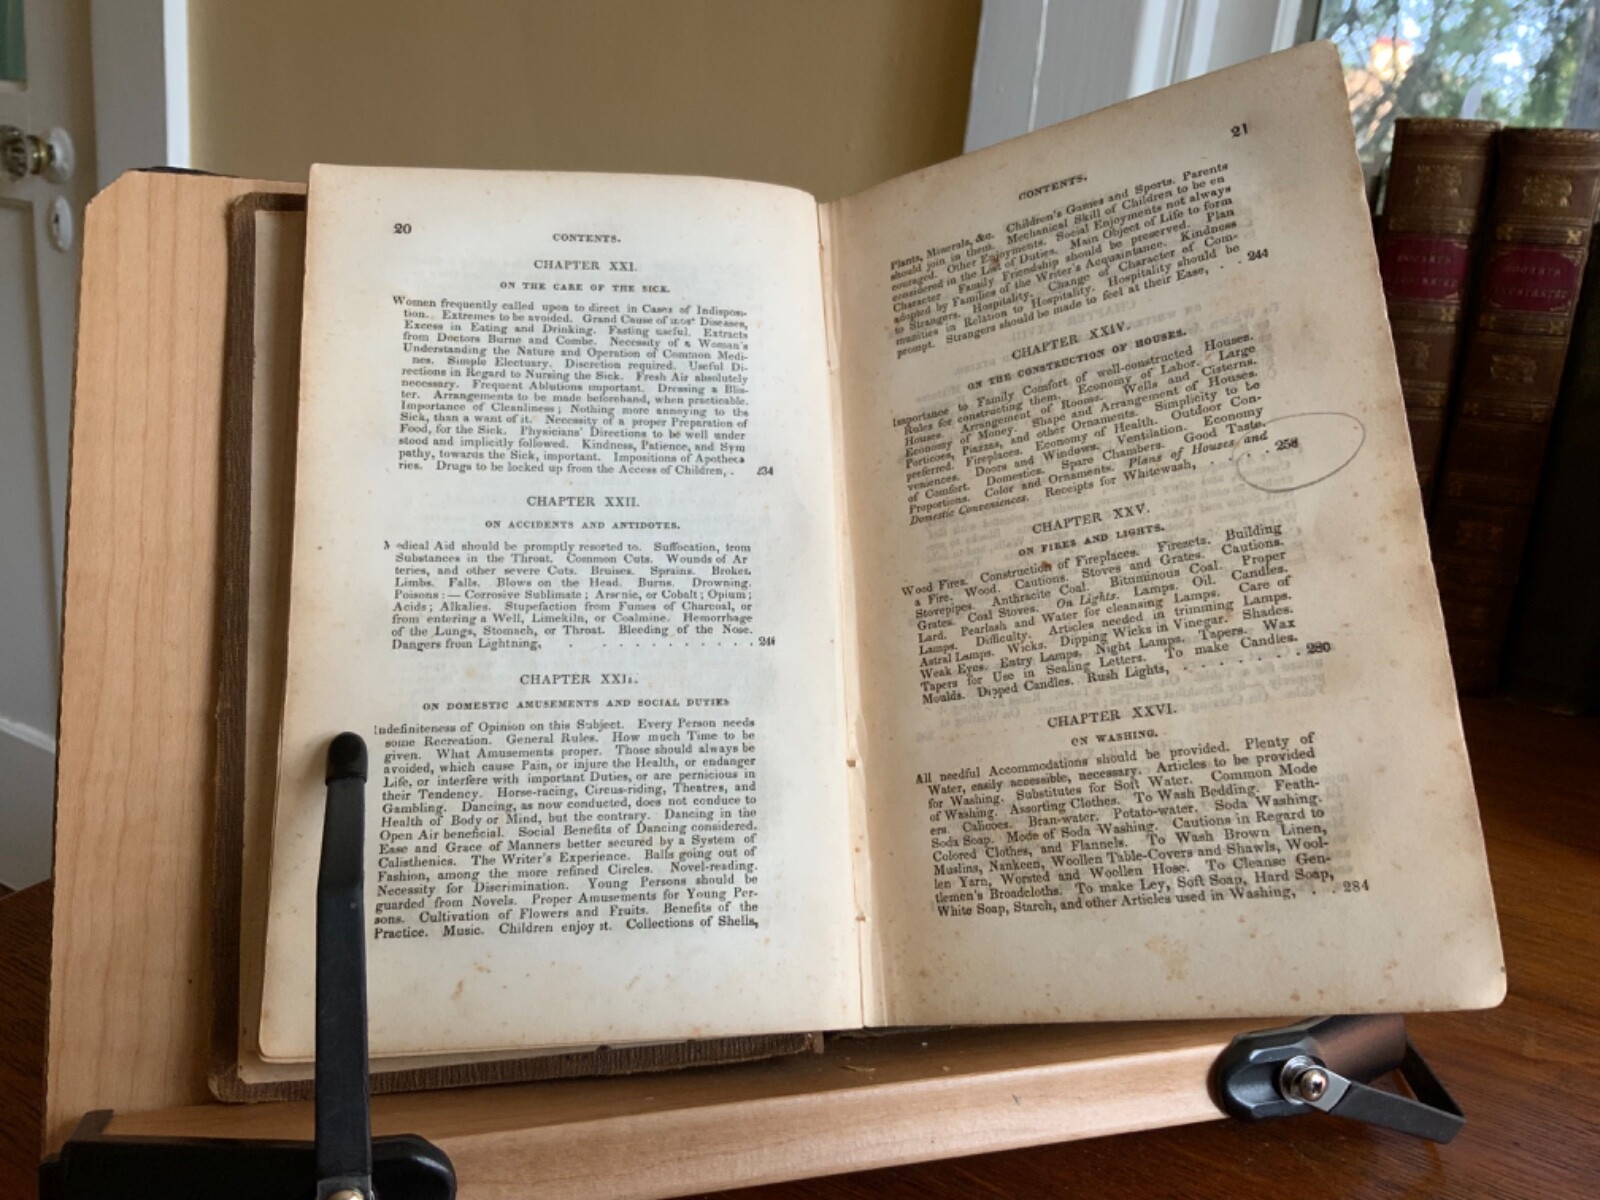 20
CONTENTS.
CHAPTER XXI.
ON THE CARE OF THE SICK.
Women frequently called upon to direct in Cases of Indisposi-
tion. Extremes to be avoided. Grand Cause of most Diseases,
Excess in Eating and Drinking. Fasting useful. Extracts
from Doctors Burne and Combe. Necessity of a Woman's
Understanding the Nature and Operation of Common Medi-
nes. Simple Electuary. Discretion required. Useful Di-
rections in Regard to Nursing the Sick. Fresh Air absolutely
necessary. Frequent Ablutions important. Dressing a Blis-
ter. Arrangements to be made beforehand, when practicable.
Importance of Cleanliness; Nothing more annoying to the
Sick, than a want of it. Necessity of a proper Preparation of
Food, for the Sick. Physicians' Directions to be well under
stood and implicitly followed. Kindness, Patience, and Sym
pathy, towards the Sick, important. Impositions of Apotheca
ries. Drugs to be locked up from the Access of Children, . 234
CHAPTER XXII.
ON ACCIDENTS AND ANTIDOTES.
Medical Aid should be promptly resorted to. Suffocation, from
Substances in the Throat. Common Cuts. Wounds of Ar
teries, and other severe Cuts. Bruises. Sprains. Broken
Limbs. Falls. Blows on the Head. Burns. Drowning.
Poisons:— Corrosive Sublimate; Arsenic, or Cobalt; Opium;
Acids; Alkalies. Stupefaction from Fumes of Charcoal, or
from entering a Well, Limekiln, or Coalmine. Hemorrhage
of the Lungs, Stomach, or Throat. Bleeding of the Nose.
Dangers from Lightning, . . . . . . . . . . .
CHAPTER
ON DOMESTIC AMUSEMENTS AND SOCIAL DUTIES
Indefiniteness of Opinion on this Subject. Every Person needs
some Recreation. General Rules. How much Time to be
given. What Amusements proper. Those should always be
avoided, which cause Pain, or injure the Health, or endanger
Life, or interfere with important Duties, or are pernicious in
their Tendency. Horse-racing, Circus-riding, Theatres, and
Gambling. Dancing, as now conducted, does not conduce to
Health of Body or Mind, but the contrary. Dancing in the
Open Air beneficial. Social Benefits of Dancing considered.
Ease and Grace of Manners better secured by a System of
Calisthenics. The Writer's Experience. Balls going out of
Fashion, among the more refined Circles. Novel-reading.
Necessity for Discrimination. Young Persons should be
guarded from Novels. Proper Amusements for Young Per-
sons. Cultivation of Flowers and Fruits. Benefits of the
Practice. Music. Children enjoy it. Collections of Shells,
21
CONTENTS.
Plants, Minerals, &c. Children's Games and Sports. Parents
should join in them. Mechanical Skill of Children to be en
couraged. Other Enjoyments. Social Enjoyments not always
considered in the List of Duties. Main Object of Life to form
Character. Family Friendship should be preserved. Plan
adopted by Families of the Writer's Acquaintance. Kindness
to Strangers. Hospitality. Change of Character of Com-
munities in Relation to Hospitality. Hospitality should be
prompt. Strangers should be made to feel at their Ease, . . 244
CHAPTER XXIV.
ON THE CONSTRUCTION OF HOUSES.
Importance to Family Comfort of well-constructed Houses.
Rules for constructing them. Economy of Labor. Large
Houses. Arrangement of Rooms. Wells and Cisterns.
Economy of Money. Shape and Arrangement of Houses.
Porticoes, Piazzas, and other Ornaments. Simplicity to be
preferred. Fireplaces. Economy of Health. Outdoor Con-
veniences. Doors and Windows. Ventilation. Economy
of Comfort. Domestics. Spare Chambers. Good Taste.
Proportions. Color and Ornaments. Plans of Houses and
Domestic Conveniences. Receipts for Whitewash, . . . . 258
CHAPTER XXV.
ON FIRES AND LIGHTS.
Wood Fires. Construction of Fireplaces. Firesets. Building
a Fire. Wood. Cautions. Stoves and Grates. Cautions.
Stovepipes. Anthracite Coal. Bituminous Coal. Proper
Grates. Coal Stoves. On Lights. Lamps. Oil. Candles.
Lard. Pearlash and Water for cleansing Lamps. Care of
Lamps. Difficulty. Articles needed in trimming Lamps.
Astral Lamps. Wicks. Dipping Wicks in Vinegar. Shades.
Weak Eyes. Entry Lamps. Night Lamps. Tapers. Wax
Tapers for Use in Sealing Letters. To make Candles.
Moulds. Dipped Candles. Rush Lights, . . . . . . . 280
CHAPTER XXVI.
ON WASHING.
All needful Accommodations should be provided. Plenty of
Water, easily accessible, necessary. Articles to be provided
for Washing. Substitutes for Soft Water. Common Mode
of Washing. Assorting Clothes. To Wash Bedding. Feath-
ers. Calicoes. Bran-water. Potato-water. Soda Washing.
Soda Soap. Mode of Soda Washing. Cautions in Regard to
Colored Clothes, and Flannels. To Wash Brown Linen,
Muslins, Nankeen, Woollen Table-Covers and Shawls, Wool-
len Yarn, Worsted and Woollen Hose. To Cleanse Gen-
tlemen's Broadcloths. To make Ley, Soft Soap, Hard Soap,
White Soap, Starch, and other Articles used in Washing, . . 284